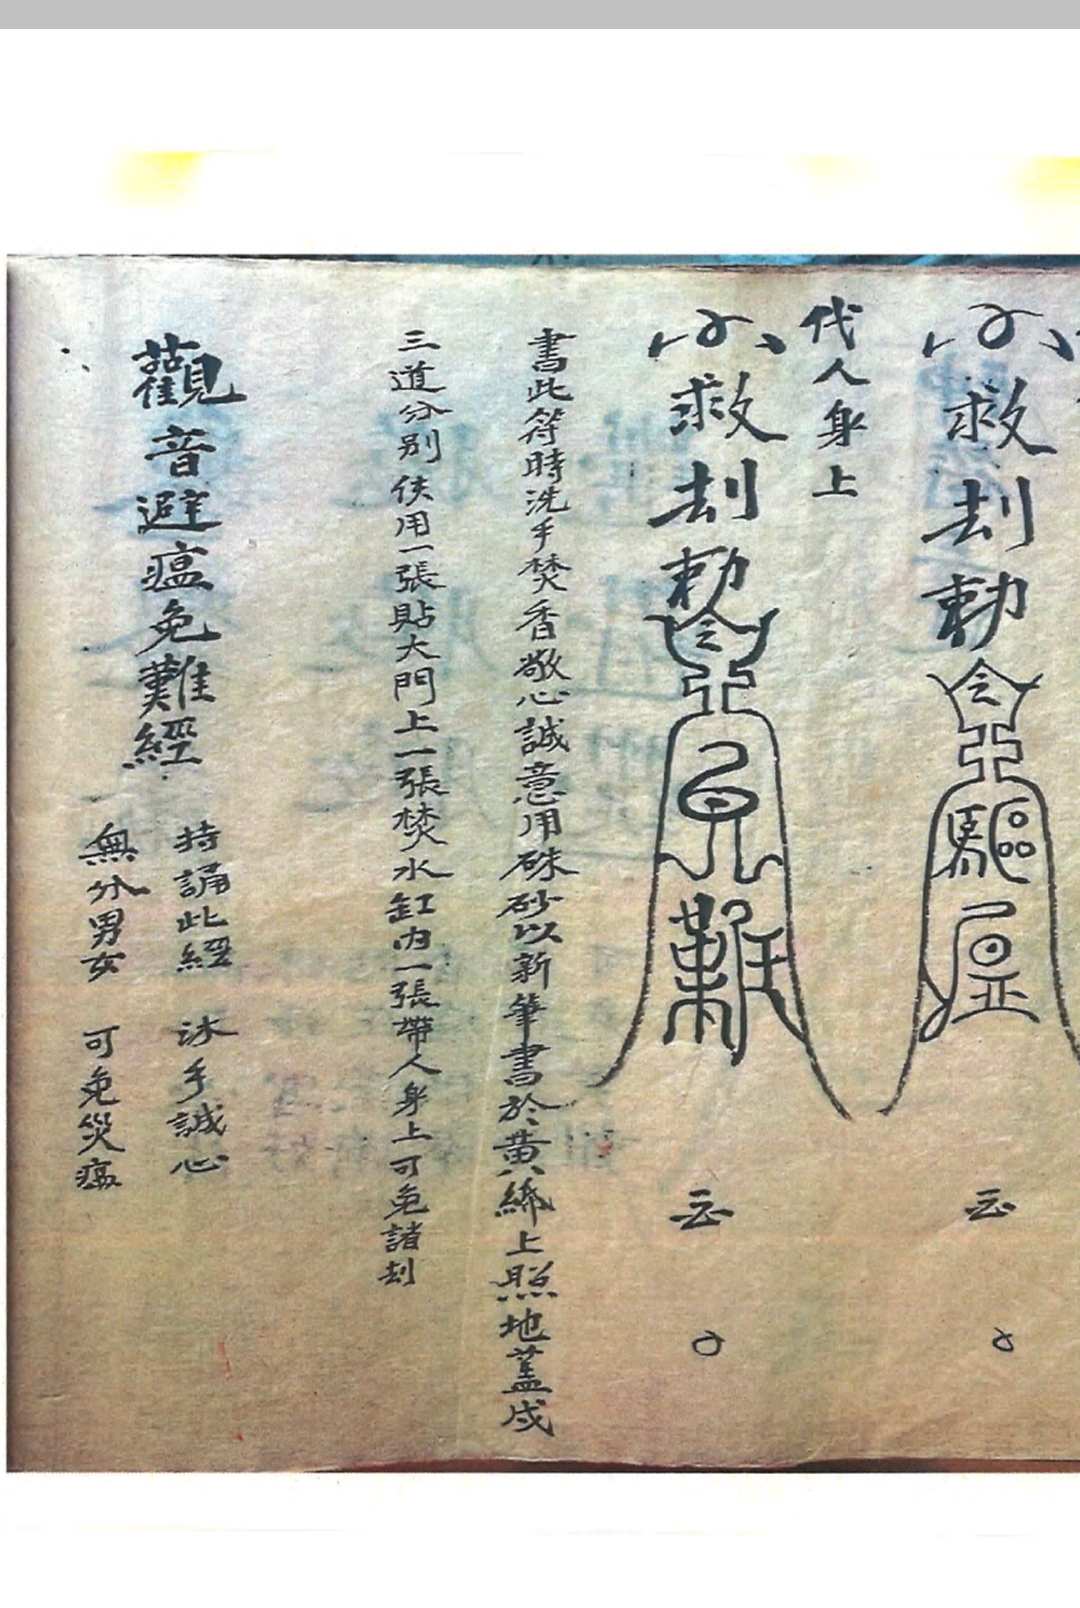 救刦勅令
驅
代人身上
救刦勅令
難
書此符時洗手焚香敬心誠意用硃砂以新筆書於黃紙上照地蓋成
三道分別使用一張貼大門上一張焚水缸內一張帶人身上可免諸刦
觀音避瘟免難經
持誦此經 沐手誠心
無分男女 可免災瘟